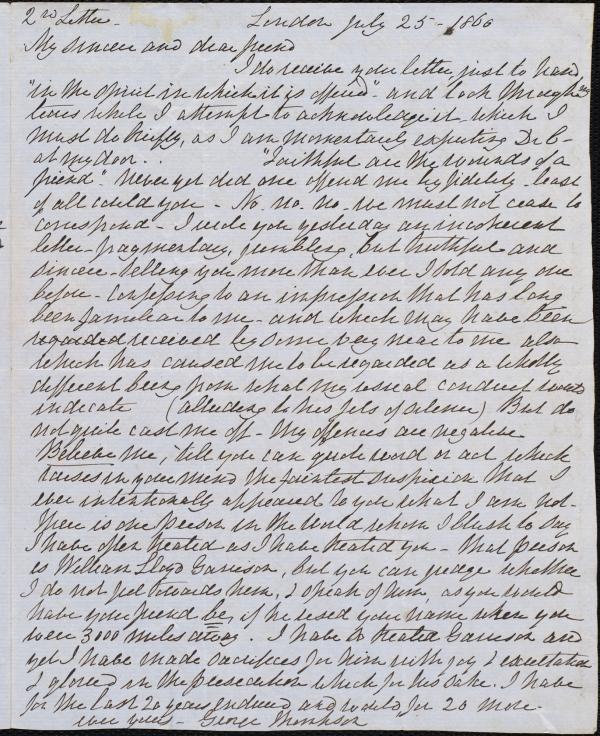 2nd Letter - London July 25 - 1860
My sincere and dear friend
I do receive your letter, just to hand
"in the spirit in which it is offered" - and look through
tears while I attempt to acknowledge it which I
must do briefly, as I am momentarily expecting Dr B-
at my door. . "Faithful are the wounds of a
friend". Never yet did one offend me by fidelity - least
of all could you - No. no. no. we must not cease to
correspond - I wrote you yesterday an incoherent
letter - fragmentary, jumbling, but truthful and
sincere - telling you more than ever I told any one
before - confessing to an impression that has long
been familiar to me - and which may have been
regarded received by some very near to me also
which has caused me to be regarded as a wholly
different being from what my usual conduct would
indicate (alluding to his fits of silence) But do
not quite cast me off - My offences are negative
Believe me, till you can quote word or act which
raises in your mind the faintest suspicion that I
ever intentionally appeared to you what I am not -
There is one person in the world whom I blush to say
I have often treated as I have treated you - that person
is William Lloyd Garrison, but you can judge whether
I do not feel towards him, & speak of him, as you would
have your friend be, if he used your name when you
were 3000 miles away. I have so treated Garrison and
yet I have made sacrifices for him with joy & exultation
& gloried in the persecution which for his sake I have
for the last 20 years endured and would for 20 more.
ever yours - George Thompson